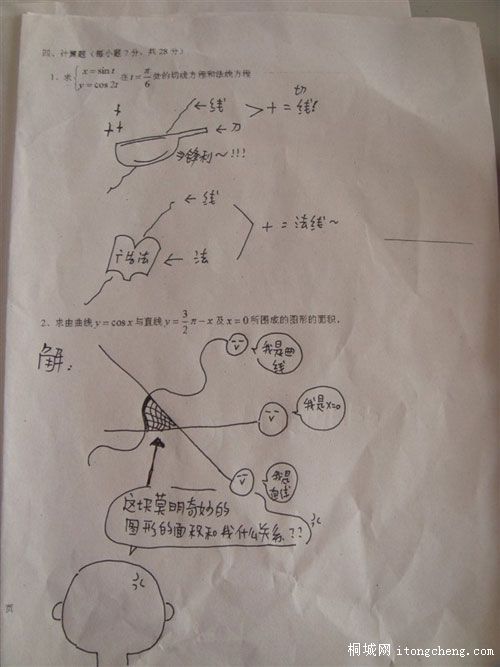 四、计算题（每小题7分，共28分）
1、求{x=sin t
y=cos 2t 在t=π/6处的切线方程和法线方程
←线
>+=切线!
←刀
锋利~!!!
←线
>+=法线~
广告法
←法
2、求由曲线y=cos x与直线y=3/2π-x及x=0所围成的图形的面积.
解:
我是曲线
我是x=0
我是直线
这块莫明奇妙的
图形的面积和我什么关系??
页
桐城网 itongcheng.com